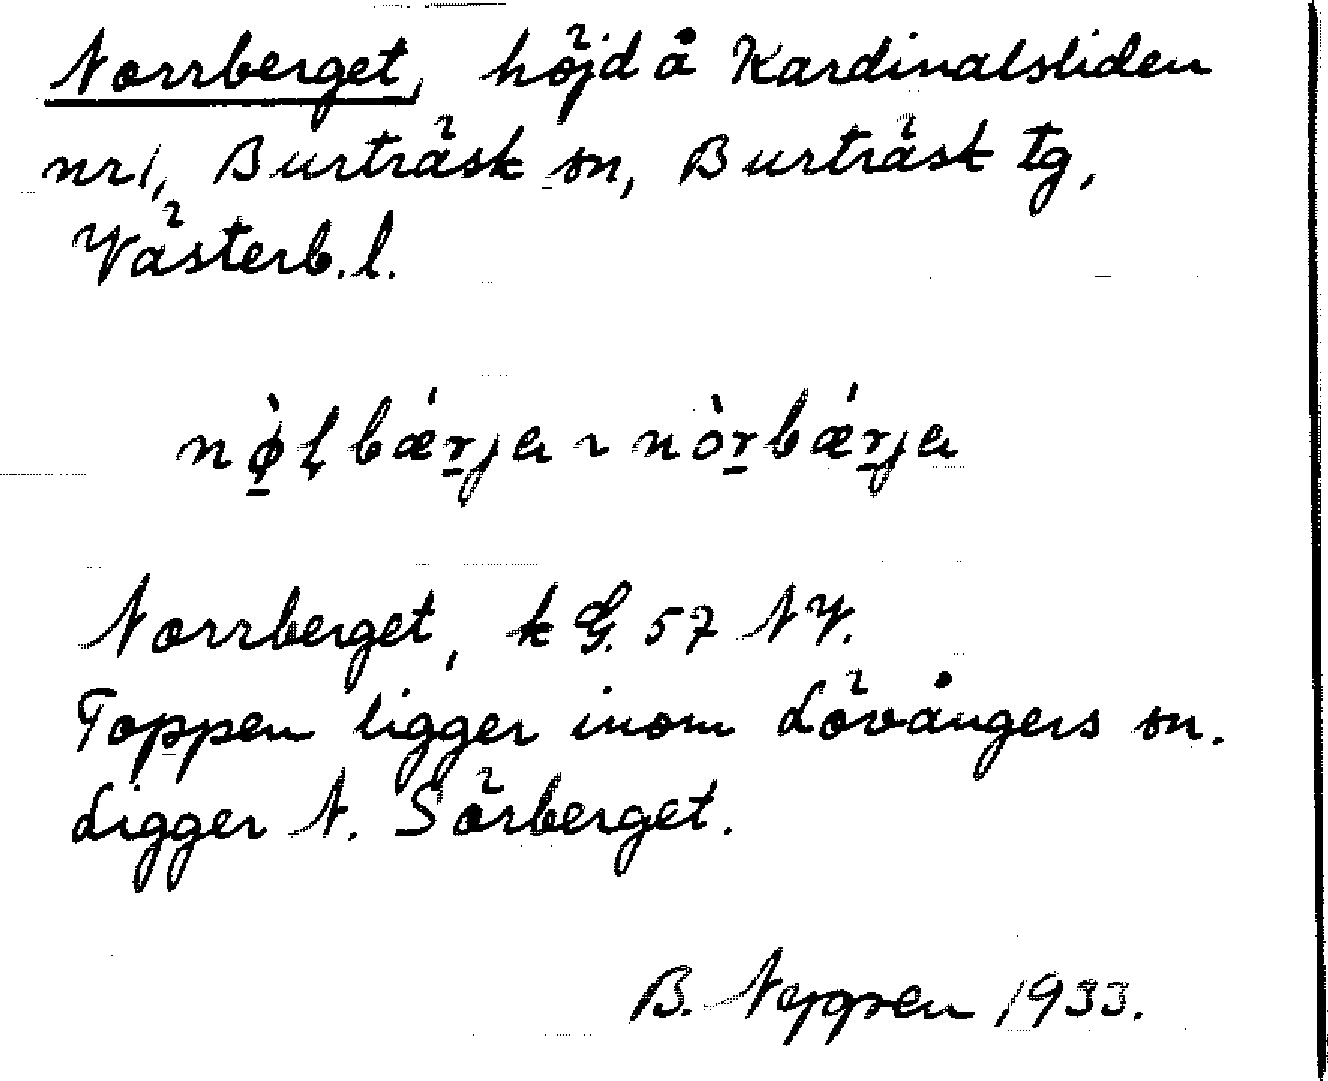 Norrberget, höjd å Kardinalsliden
nr 1, Burträsk sn, Burträsk tg,
Västerb. l.
nø̱̀ɭbǽṟja ~ nòṟbǽṟja
Norrberget, k G. 57 NV.
Toppen ligger inom Lövångers sn.
Ligger N. Sörberget.
B. Nygren 1933.